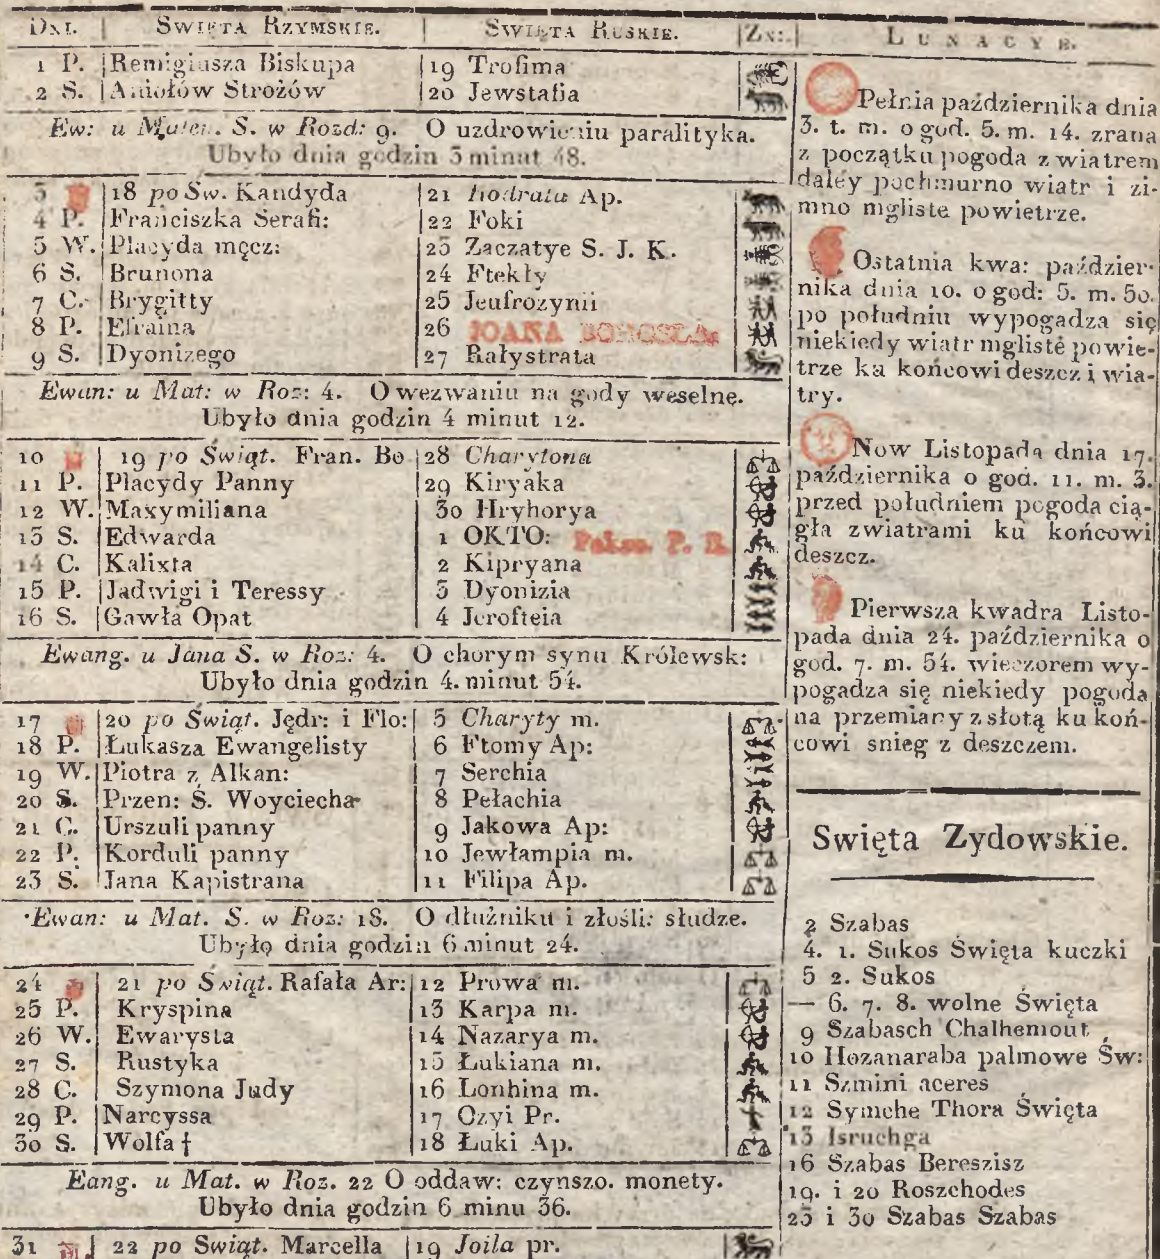 DNI. SWIĘTA RZYMSKIE. SWIĘTA RUSKIE. ZN:
1 P. Remigiusza Biskupa 19 Trofima
2 S. Aniołów Strożów 20 Jewstafia
Ew: u Mateu. S. w Rozd: 9. O uzdrowieniu paralityka.
Ubyło dnia godzin 3 minut 48.
3 18 po Św. Kandyda 21 Kodrata Ap.
4 P. Franciszka Serafi: 22 Foki
5 W. Placyda męcz: 23 Zaczatye S. J. K.
6 S. Brunona 24 Ftekły
7 C. Brygitty 25 Jeufrozynii
8 P. Efraima 26 JOANA BOHOSŁA
9 S. Dyonizego 27 Rałystrata
Ewan: u Mat: w Roz: 4. O wezwaniu na gody weselne.
Ubyło dnia godzin 4 minut 12.
10 19 po Świąt. Fran. Bo 28 Charytona
11 P. Placydy Panny 29 Kiryaka
12 W. Maxymiliana 30 Hryhorya
13 S. Edwarda 1 OKTO: Pokro. P. B.
14 C. Kalixta 2 Kipryana
15 P. Jadwigi i Teressy 3 Dyonizia
16 S. Gawła Opat 4 Jerofteia
Ewang. u Jana S. w Roz: 4. O chorym synu Królewsk:
Ubyło dnia godzin 4. minut 54.
17 20 po Świąt. Jędr: i Flo: 5 Charyty m.
18 P. Łukasza Ewangelisty 6 Ftomy Ap:
19 W. Piotra z Alkan: 7 Serchia
20 S. Przen: S. Woyciecha 8 Pełachia
21 C. Urszuli panny 9 Jakowa Ap:
22 P. Korduli panny 10 Jewłampia m.
23 S. Jana Kapistrana 11 Filipa Ap.
Ewan: u Mat. S. w Roz: 18. O dłużniku i złośli: słudze.
Ubyło dnia godzin 6 minut 24.
24 21 po Świąt. Rafała Ar: 12 Prowa m.
25 P. Kryspina 13 Karpa m.
26 W. Ewarysta 14 Nazarya m.
27 S. Rustyka 15 Łukiana m.
28 C. Szymona Judy 16 Lonhina m.
29 P. Narcyssa 17 Ozyi Pr.
30 S. Wolfa † 18 Łuki Ap.
Eang. u Mat. w Roz. 22 O oddaw: czynszo. monety.
Ubyło dnia godzin 6 minu 36.
31 22 po Swiąt. Marcella 19 Joila pr.
LUNACYE.
Pełnia października dnia
3. t. m. o god. 5. m. 14. zrana
z początku pogoda z wiatrem
daley pochmurno wiatr i zi-
mno mgliste powietrze.
Ostatnia kwa: paździer-
nika dnia 10. o god: 5. m. 50.
po południu wypogadza się
niekiedy wiatr mglisté powie-
trze ku końcowi deszcz i wia-
try.
Now Listopada dnia 17.
października o god. 11. m. 3.
przed południem pogoda cią-
gła z wiatrami ku końcowi
deszcz.
Pierwsza kwadra Listo-
pada dnia 24. października o
god. 7. m. 54. wieczorem wy-
pogadza się niekiedy pogoda
na przemiany z słotą ku koń-
cowi snieg z deszczem.
Swięta Zydowskie.
2 Szabas
4. 1. Sukos Święta kuczki
5 2. Sukos
— 6. 7. 8. wolne Święta
9 Szabasch Chalhemout
10 Hozanaraba palmowe Św:
11 Szmini aceres
12 Symche Thora Święta
13 Isruchga
16 Szabas Bereszisz
19. i 20 Roszchodes
23 i 30 Szabas Szabas